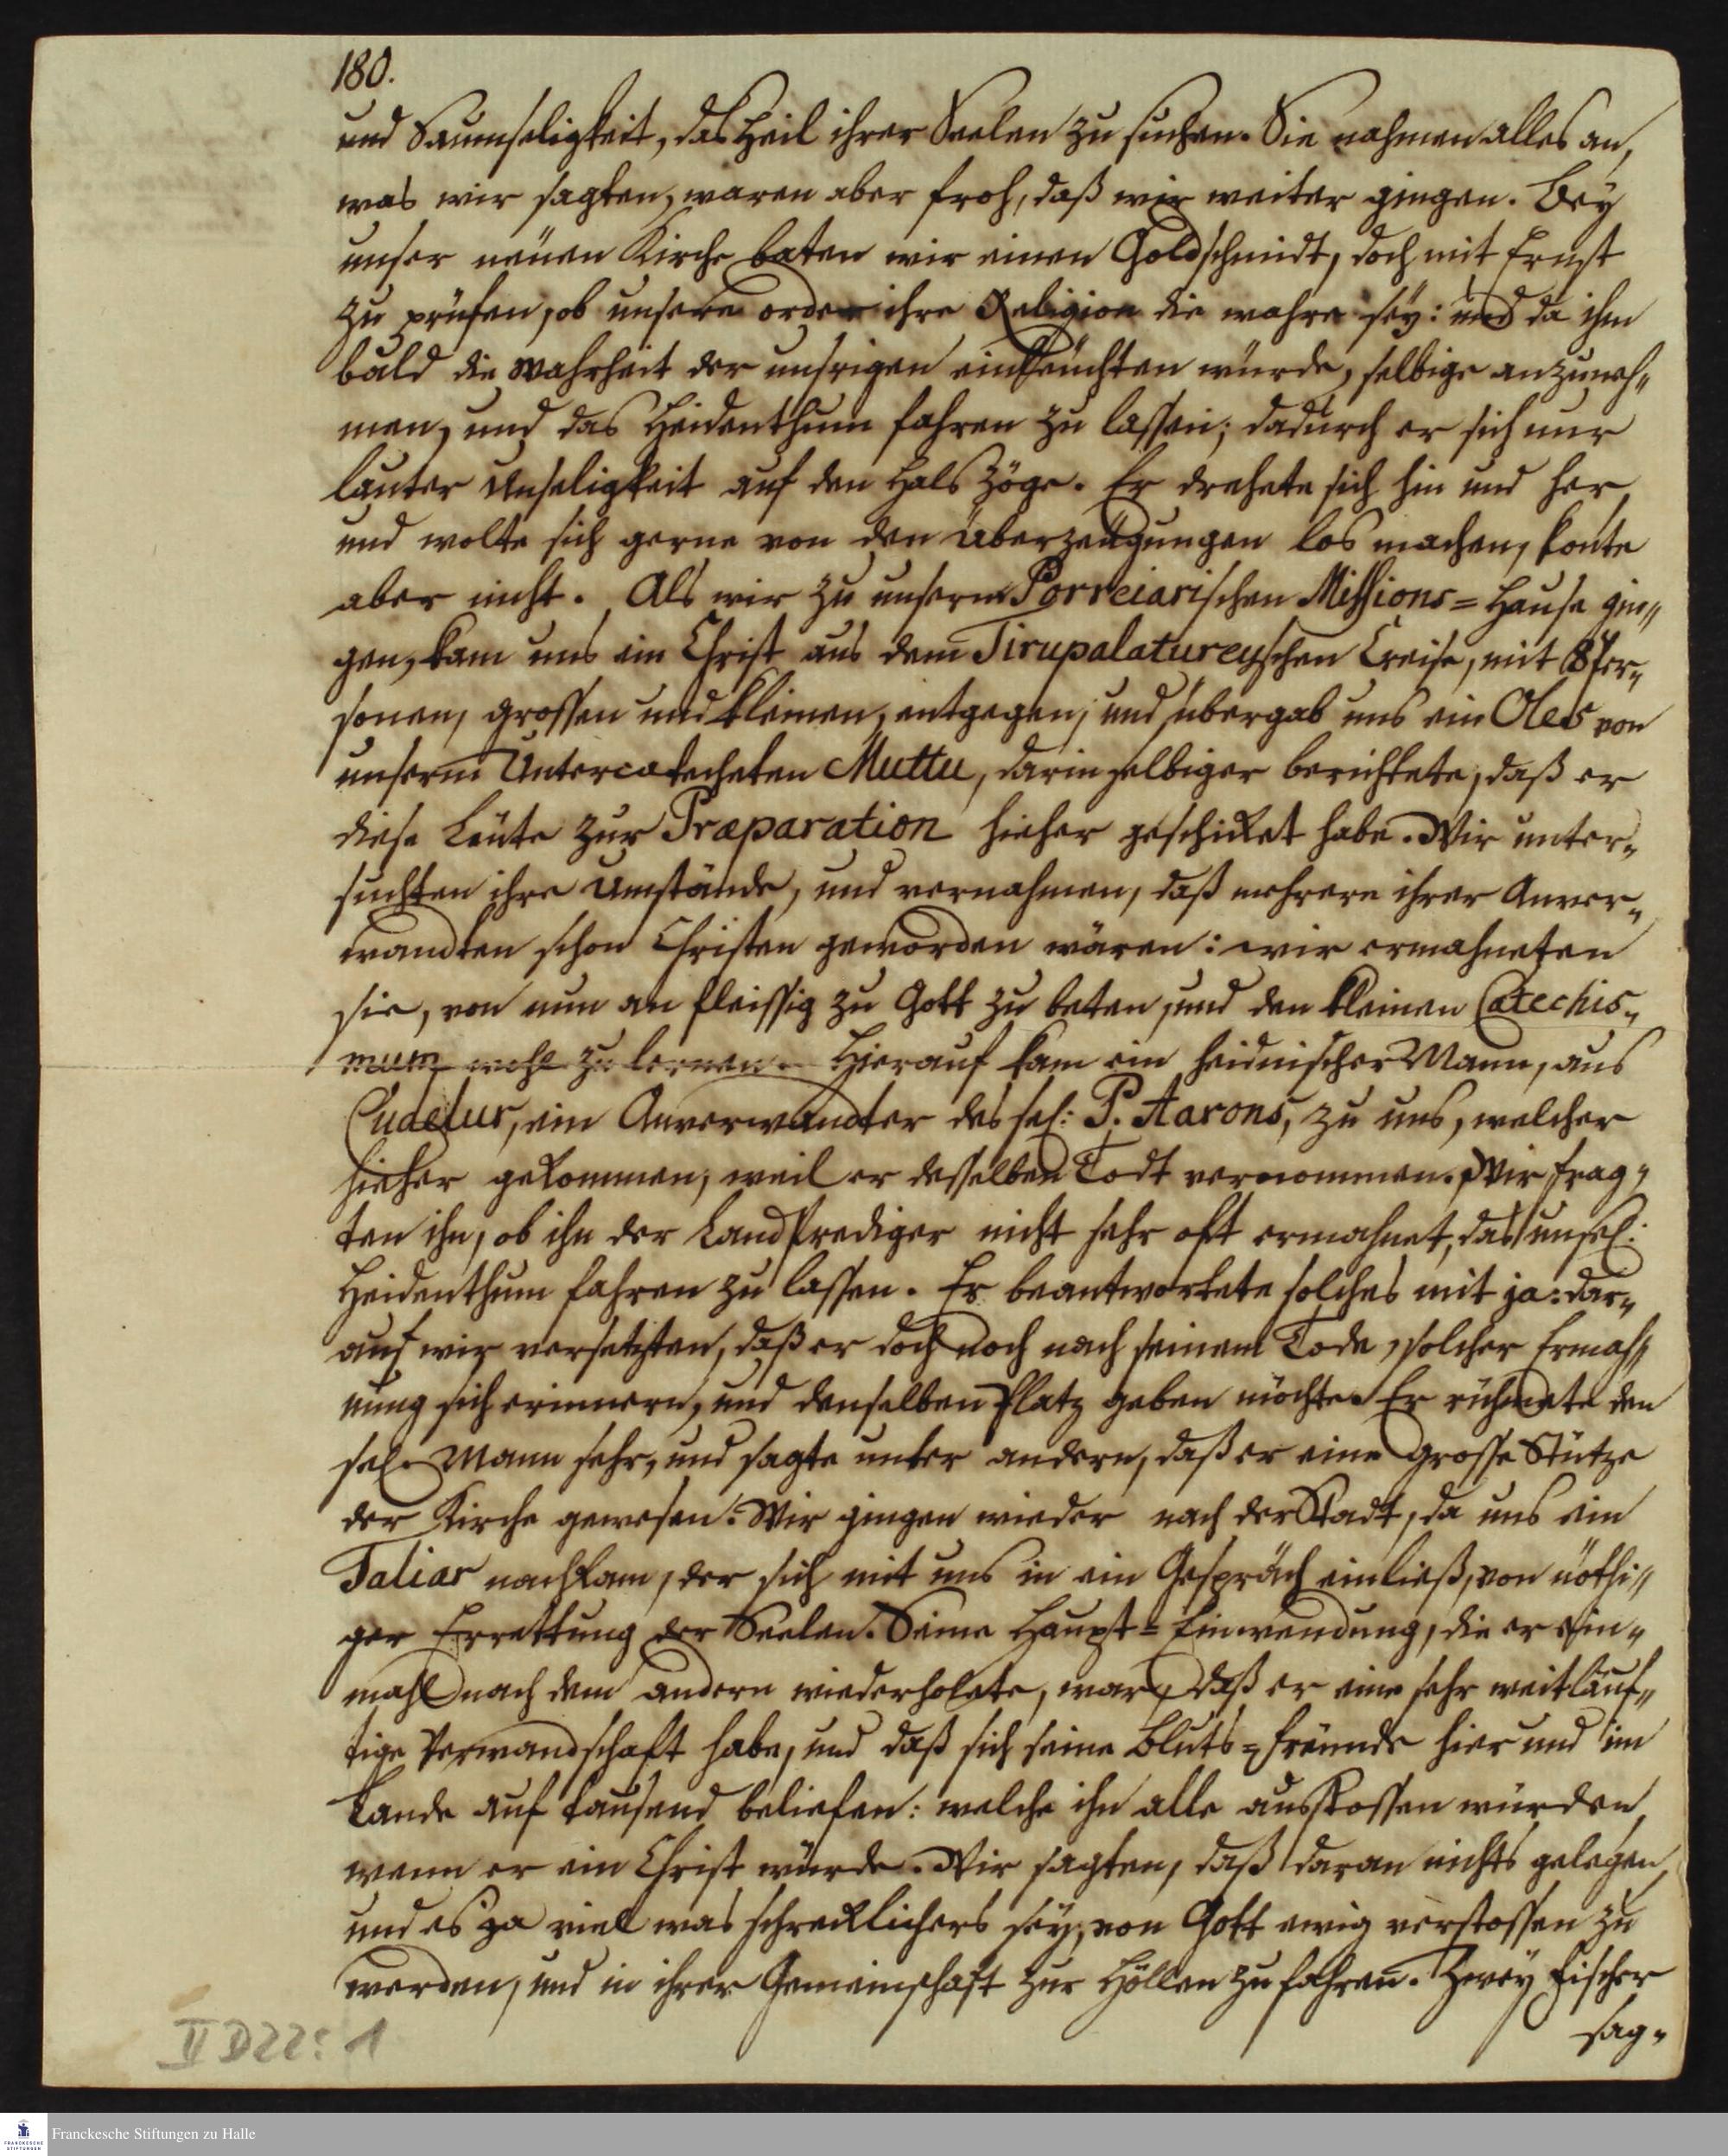 180.
und Saumseligkeit, das Heil ihrer Seelen zu suchen. Sie nahmen alles an,
was wir sagten, waren aber froh, daß wir weiter gingen. Bey
unser neuen Kirche baten wir einen Goldschmidt, doch mit Ernst
zu prüfen, ob unsere oder ihre Religion die wahre sey: und da ihm
bald die Wahrheit der unsrigen einleuchten würde, selbige anzuneh„
men, und das Heidenthum fahren zu lassen; dadurch er sich nur
lauter Unseligkeit auf den Hals zöge. Er drehete sich hin und her,
und wolte sich gerne von den Überzeugungen los machen, konte
aber nicht. Als wir zu unserm Porreiarischen Missions=Hause gin„
gen, kam uns ein Christ aus dem Tirupalatureyschen Creise, mit 8 Per„
sonen, grossen und kleinen, entgegen, und übergab uns ein Oles von
unserm Untercatecheten Muttu, darin selbiger berichtete, daß er
diese Leute zur Præparation hieher geschicket habe. Wir unter„
suchten ihre Umstände, und vernahmen, daß mehrere ihrer Anver„
wandten schon Christen geworden wären: wir ermahneten
sie, von nun an fleissig zu Gott zu beten, und den kleinen Catechis„
mum wohl zu lernen. Hierauf kam ein heidnischer Mann, aus
Cudelur, ein Anverwandter des sel: P. Aarons, zu uns, welcher
hieher gekommen, weil er desselben Todt vernommen. Wir frag„
ten ihn, ob ihn der Landprediger nicht sehr oft ermahnet, das unsel:
Heidenthum fahren zu lassen. Er beantwortete solches mit ja: dar„
auf wir versetzten, daß er doch noch nach seinem Tode, solcher Ermah„
nung sich erinnern, und denselben Platz geben möchte. Er rühmete den
sel. Mann sehr, und sagte unter andern, daß er eine grosse Stütze
der Kirche gewesen. Wir gingen wieder nach der Stadt, da uns ein
Taliar nachkam, der sich mit uns in ein Gespräch einließ, von nöthi„
ger Errettung der Seelen. Seine Haupt=Einwendung, die er ein„
mahl nach dem andern wiederholete, war, daß er eine sehr weitläuf„
tige Verwandschaft habe, und daß sich seine Bluts=Freunde hier und im
Lande auf tausend beliefen: welche ihn alle ausstossen würden,
wenn er ein Christ würde. Wir sagten, daß daran nichts gelegen,
und es ja viel was schrecklichers sey, von Gott ewig verstossen zu
werden, und in ihrer Gemeinschaft zur Höllen zu fahren. Zwey Fischer
sag„
II D22: 1
FRANCKESCHE
STIFTUNGEN
Franckesche Stiftungen zu Halle